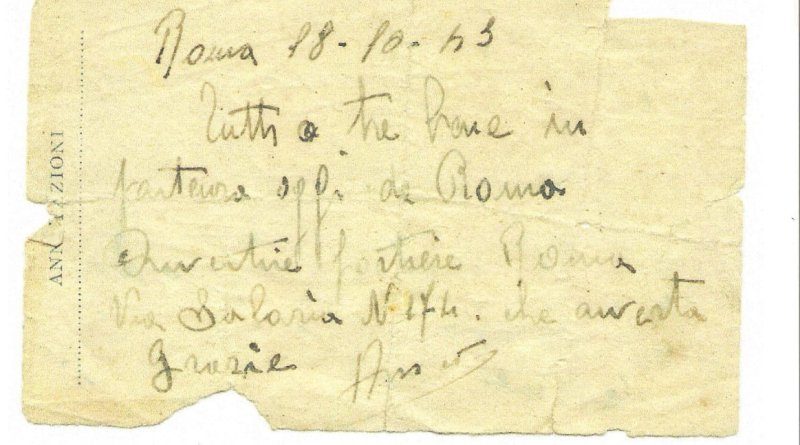 ANNOTAZIONI
Roma 18-10-43
Tutti e tre bene in
partenza oggi da Roma
Avvertire portiere Roma
Via Salaria N 174. che avverta
Grazie